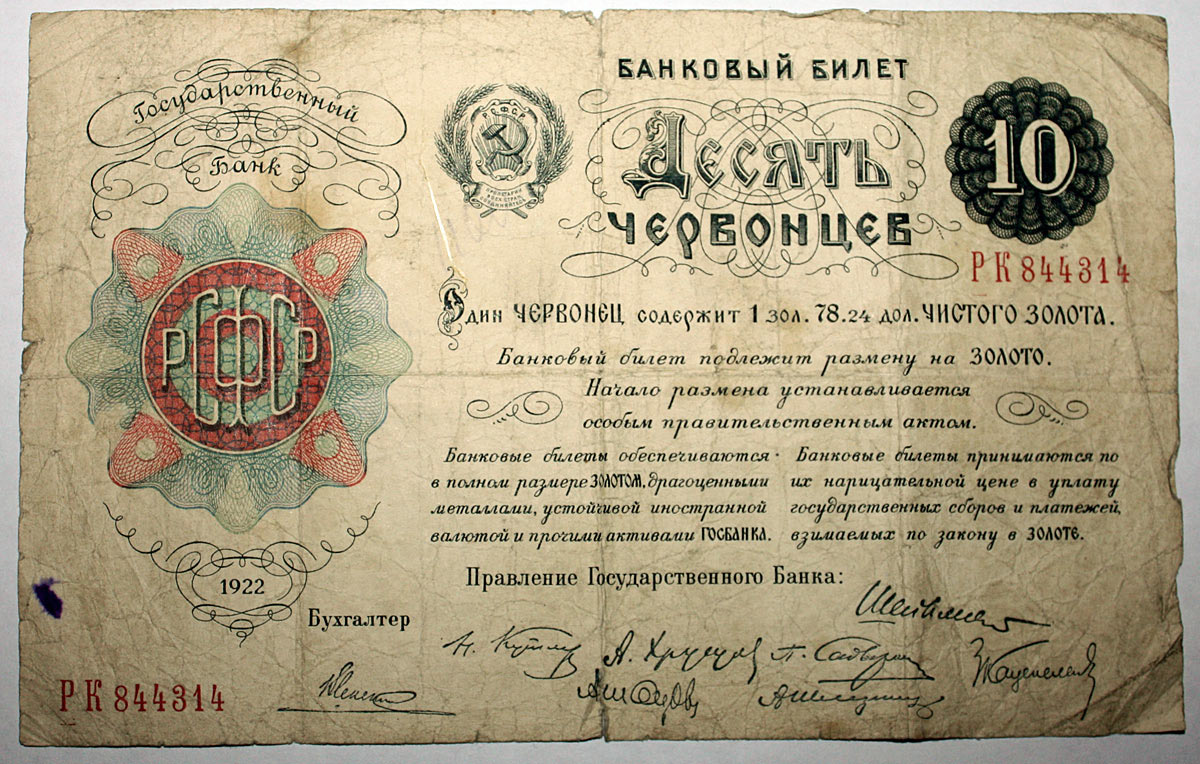 Государственный
Банк
РСФСР
1922
Бухгалтер
РК 844314
БАНКОВЫЙ БИЛЕТ
РСФСР
ПРОЛЕТАРИИ
ВСЕХ СТРАН
СОЕДИНЯЙТЕСЬ
ДЕСЯТЬ
ЧЕРВОНЦЕВ
10
РК 844314
Один ЧЕРВОНЕЦ содержит 1 зол. 78.24 дол. ЧИСТОГО ЗОЛОТА.
Банковый билет подлежит размену на ЗОЛОТО.
Начало размена устанавливается
особым правительственным актом.
Банковые билеты обеспечиваются
в полном размере ЗОЛОТОМ, драгоценными
металлами, устойчивой иностранной
валютой и прочими активами ГОСБАНКА.
Банковые билеты принимаются по
их нарицательной цене в уплату
государственных сборов и платежей,
взимаемых по закону в ЗОЛОТЕ.
Правление Государственного Банка: